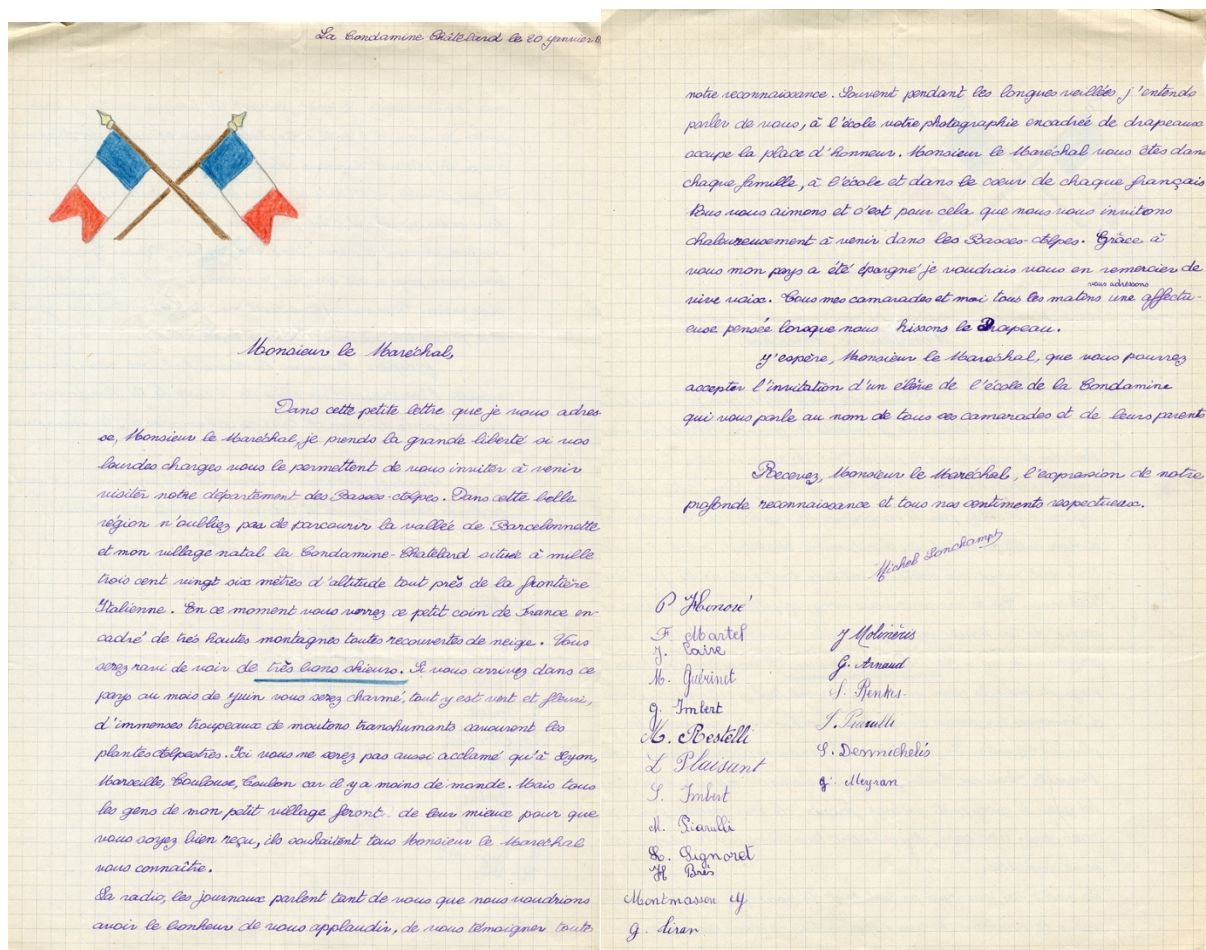 La Condamine Châtelard le 20 janvier
Monsieur le Maréchal,
Dans cette petite lettre que je vous adres-
se, Monsieur le Maréchal, je prends la grande liberté si vos
lourdes charges vous le permettent de vous inviter à venir
visiter notre département des Basses-Alpes. Dans cette belle
région n'oubliez pas de parcourir la vallée de Barcelonnette
et mon village natal la Condamine-Châtelard située à mille
trois cent vingt six mètres d'altitude tout près de la frontière
Italienne. En ce moment vous verrez ce petit coin de France en-
cadré de très hautes montagnes toutes recouvertes de neige. Vous
serez ravi de voir de très bons skieurs. Si vous arrivez dans ce
pays au mois de juin vous serez charmé, tout y est vert et fleuri,
d'immenses troupeaux de moutons transhumants savourent les
plantes Alpestres. Ici vous ne serez pas aussi acclamé qu'à Lyon,
Marseille, Toulouse, Toulon car il y a moins de monde. Mais tous
les gens de mon petit village feront de leur mieux pour que
vous soyez bien reçu, ils souhaitent tous Monsieur le Maréchal
vous connaître.
La radio, les journaux parlent tant de vous que nous voudrions
avoir le bonheur de vous applaudir, de vous témoigner toute
notre reconnaissance. Souvent pendant les longues veillées j'entends
parler de vous, à l'école votre photographie encadrée de drapeaux
occupe la place d'honneur. Monsieur le Maréchal vous êtes dans
chaque famille, à l'école et dans le cœur de chaque français
Nous vous aimons et c'est pour cela que nous vous invitons
chaleureusement à venir dans les Basses-Alpes. Grâce à
vous mon pays a été épargné je voudrais vous en remercier de
vous adressons
vive voix. Tous mes camarades et moi tous les matins une affectu-
euse pensée lorsque nous hissons le Drapeau.
J'espère, Monsieur le Maréchal, que vous pourrez
accepter l'invitation d'un élève de l'école de la Condamine
qui vous parle au nom de tous ses camarades et de leurs parents
Recevez, Monsieur le Maréchal, l'expression de notre
profonde reconnaissance et tous nos sentiments respectueux.
Michel Lonchampt
P Honoré
F. Martel
J. Caire
M. Guérinet
g. Imbert
M. Restelli
L Plaisant
S. Imbert
M. Piarulli
L. Signoret
H Brès
Montmasson
g.
J Molinéris
G. Arnaud
S. Renkes
J. Piarulli
S. Desmichelis
g. Meyran